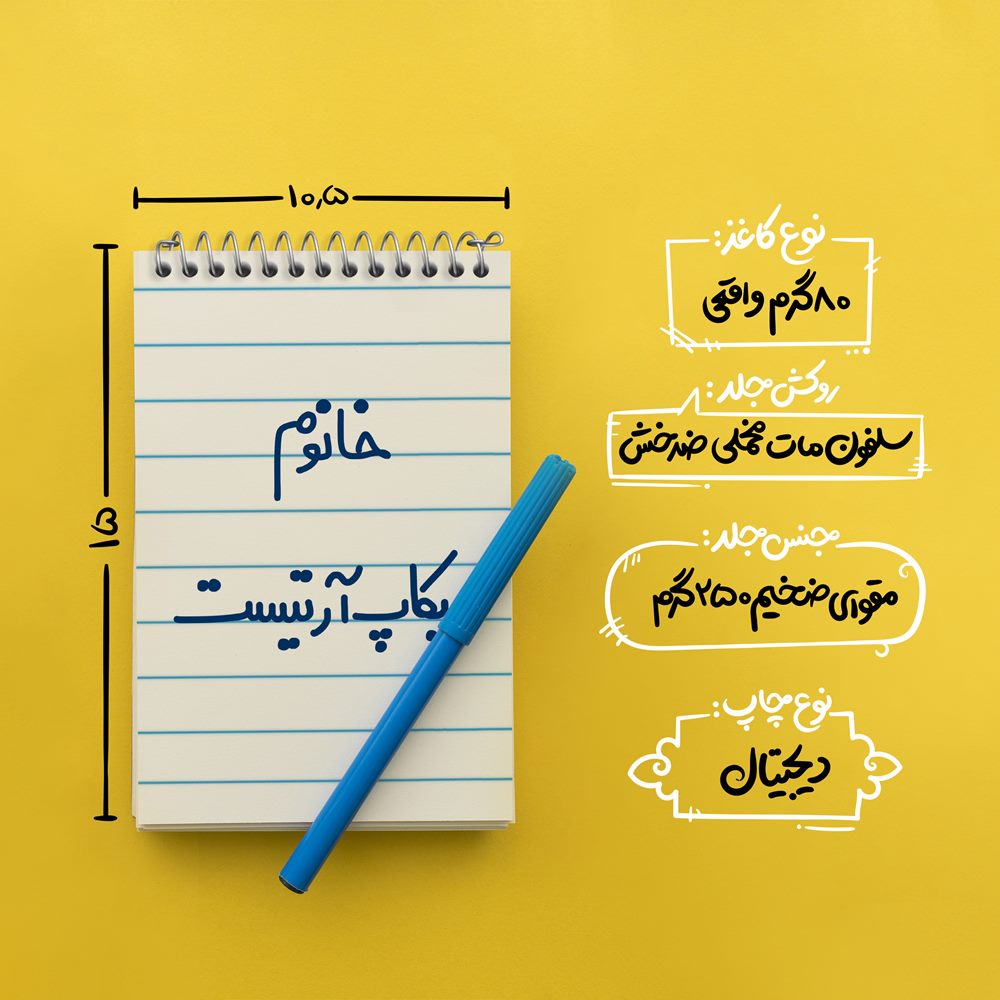 ۱۰٫۵
۱۵
خانوم
یکاپ آرتیست
نوع کاغذ:
۸۰ گرم واقعی
روکش جلد:
سلفون مات مخملی ضدخش
جنس جلد:
مقوای ضخیم ۲۵۰ گرم
نوع چاپ:
دیجیتال